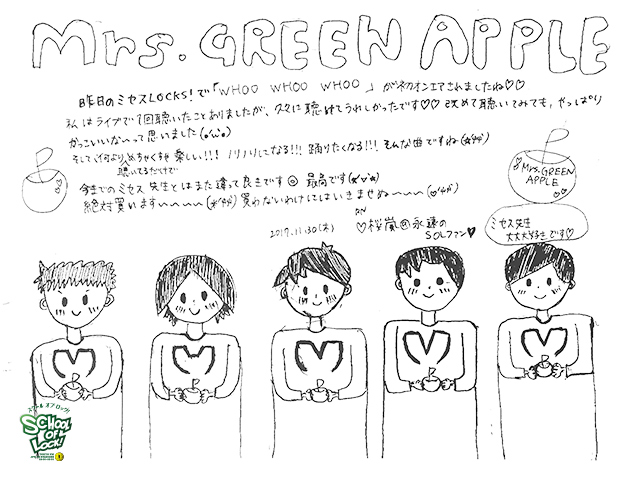 Mrs. GREEN APPLE
昨日のミセスLOCKS!で「WHOO WHOO WHOO」が初オンエアされましたね♡♡
私はライブで1回聴いたことありましたが、久々に聴けてうれしかったです♡♡ 改めて聴いてみても、やっぱり
かっこいいな〜って思いました
そして何よりめちゃくちゃ楽しい!!! ノリノリになる!!! 踊りたくなる!!! そんな曲ですね
聴いてるだけで
今までのミセス先生とはまた違って良きです◎ 最高です
絶対買います〜〜〜〜 買わないわけにはいきませぬ〜〜〜
2017.11.30(木)
RN
♡桜嵐@永遠の
SOLファン♥
Mrs.GREEN
APPLE
ミセス先生
大大大好きです♡
スクール オブ ロック!
SCHOOL
OF
LOCK!